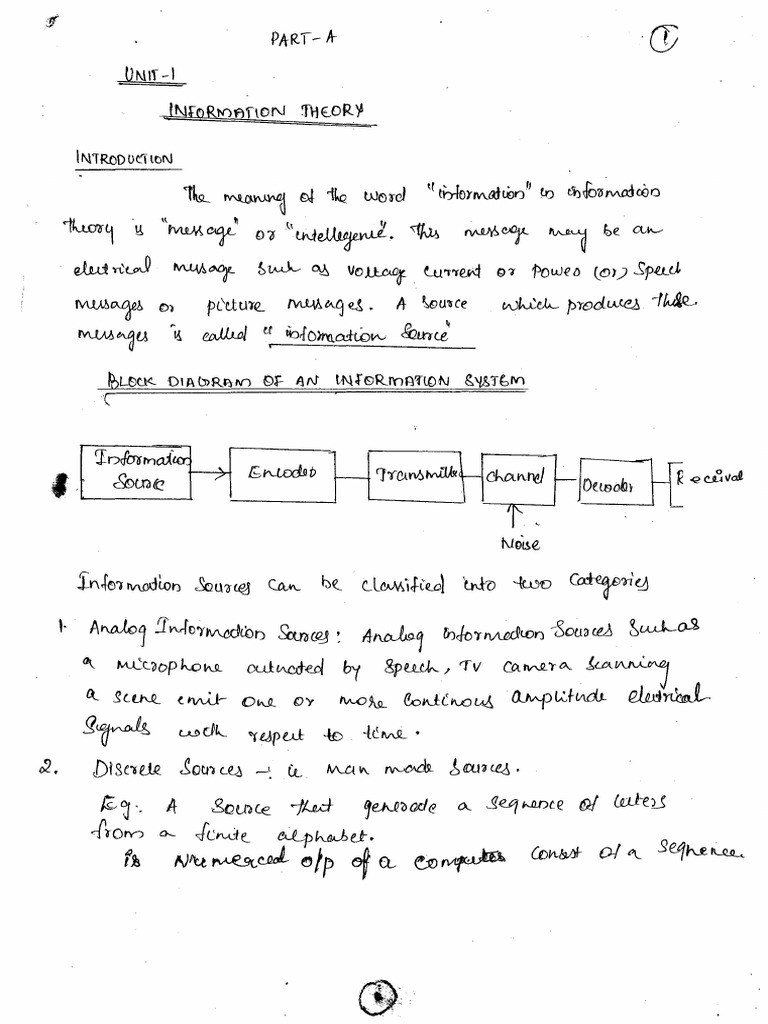 PART-A
1
UNIT-1
INFORMATION THEORY
INTRODUCTION
The meaning of the word "information" in information
theory is "message" or "intellegence". This message may be an
electrical message such as voltage current or power (or) speech
messages or picture messages. A source which produces these
messages is called "information source"
BLOCK DIAGRAM OF AN INFORMATION SYSTEM
Information Source
Encoder
Transmitter
Channel
Decoder
Receival
Noise
Information sources can be classified into two categories
1. Analog Information Sources: Analog information sources such as
a microphone actuated by speech, TV camera scanning
a scene emit one or more continous amplitude electrical
signals with respect to time.
2. Discrete sources -: ie man made sources.
Eg:. A source that generate a sequence of letters
from a finite alphabet.
is Numerced o/p of a computer consist of a sequence.